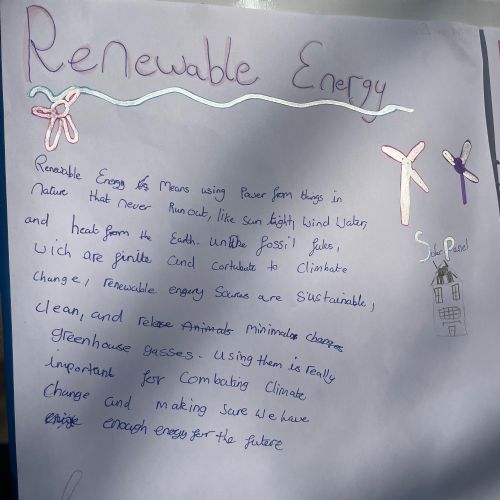 Renewable Energy
Renewable Energy is Means using Power from things in
nature that never Run out, like Sun light, Wind Water,
and heat from the Earth. unlike fossil fules,
wich are finite and contubate to climbate
change, renewable engury Sources are Sustainable,
clean, and release Animals minimal changes
greenhouse gasses. Using them is really
important for Combating Climate
Change and making Sure We have
enough energy for the future
Solar Panel